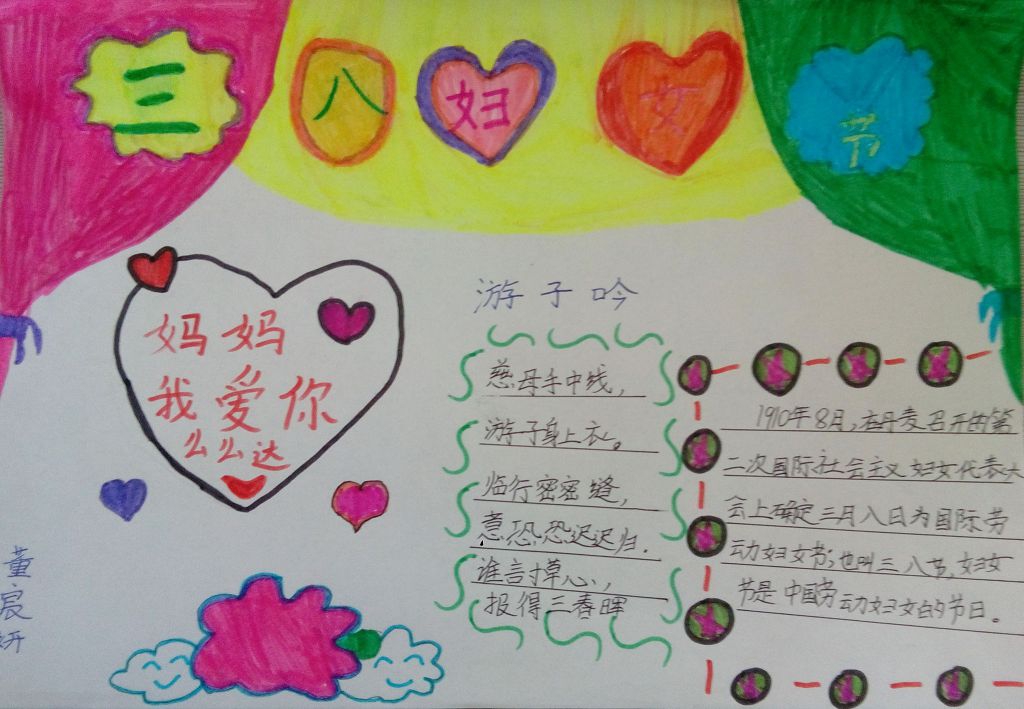 三八妇女节
妈妈
我爱你
么么达
游子吟
慈母手中线，
游子身上衣。
临行密密缝，
意恐恐迟迟归.
谁言寸草心，
报得三春晖
1910年8月,在丹麦召开的第
二次国际社会主义妇女代表大
会上确定三月八日为国际劳
动妇女节;也叫三八节,妇女
节是中国劳动妇女的节日。
董
宸
妍